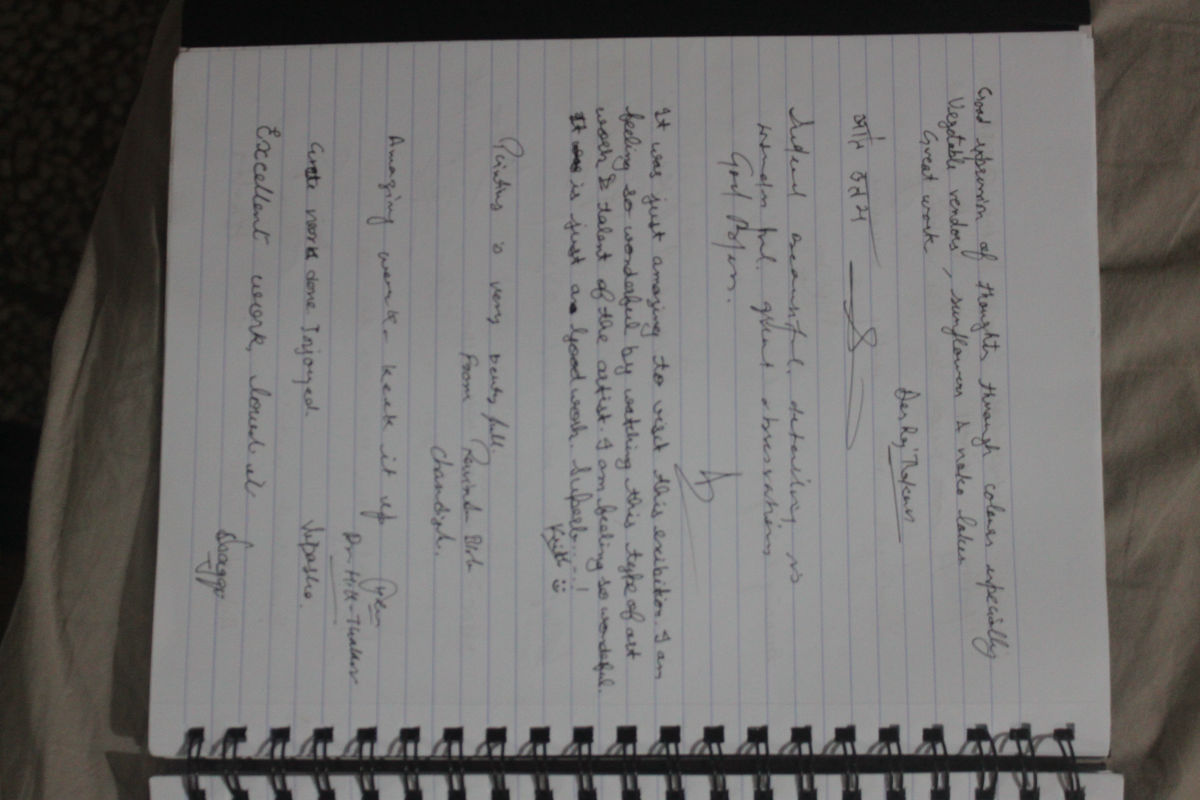 Good expression of thoughts through colours especially
Vegetable vendors, sunflowers & nako lake.
Great work
Indeed beautiful, detailing is
wonderful. great observations
It was just amazing to visit this exibition. I am
feeling so wonderful by watching this type of art
work & talent of the artist. I am feeling so wondeful.
It is just a Good work Superb....!
Painting is very beuty full.
From
Chandigh.
Amazing work keek it up
Dr. Thakur
work done Injoyed.
Excellent work, loved it